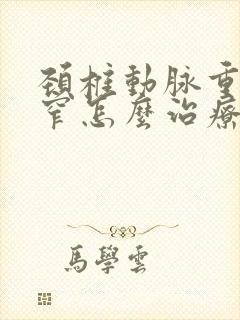 頸椎動脉重
窄怎麼治療
馬學雲